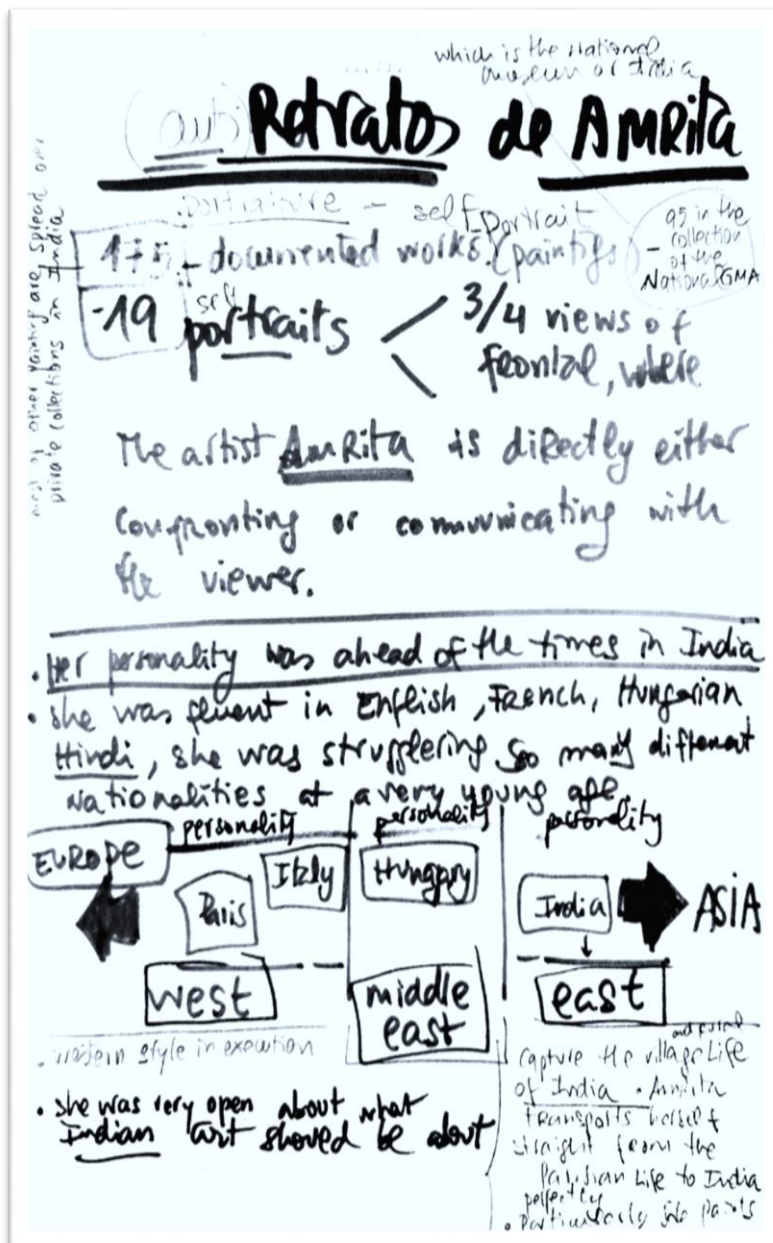 which is the National
museum of India
(auto) Retratos de AMRita
.portraiture - self portrait
175 - documented works. (paintigs)
95 in the
- collection
of the
National GMA
most of other painting are spread over
private collections in India
-19 self portraits
3/4 views of
frontal, where
The artist AmRita is directly either
confronting or communicating with
the viewer.
. Her personality was ahead of the times in India
. she was fluent in English, French, Hungarian
Hindi, she was strugglering so many different
Nationalities at a very young age.
EUROPE
personality
personality
personality
Paris
Italy
Hungary
India
ASiA
west
middle
east
east
. western style in execution
. she was very open about what
Indian art shoved be about
capture the village Life
of India . Amrita
transports herself
straight from the
Parishan Life to India
perfectly
. Particularly she paints